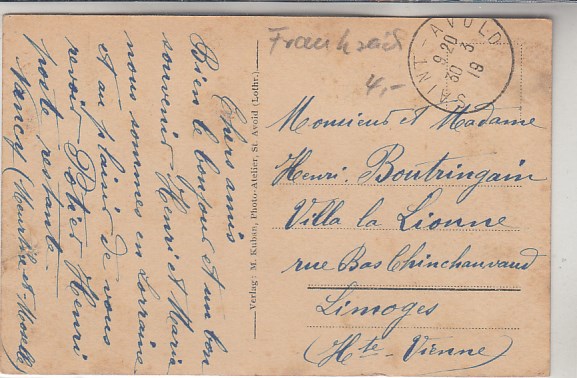 Chers amis
Bien le bonjour et un bon
souvenir Henri et Maria
nous sommes en Lorraine
et au plaisir de vous
revoir Potier Henri
poste restante
Nancy (Meurthe-et-Moselle)
Verlag: M. Kuhan, Photo-Atelier, St. Avold (Lothr.)
Frankreich
4,-
SAINT-AVOLD
9 20
30 3
19
Monsieur et Madame
Henri Boutringain
Villa la Lionne
rue Bas Chinchauvaud
Limoges
(Hte-Vienne)